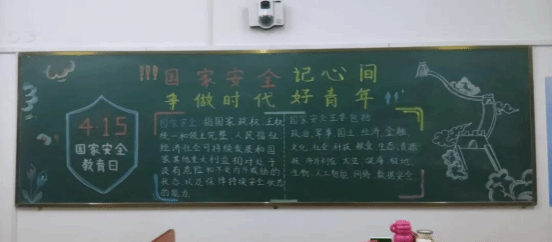 国家安全记心间
争做时代好青年
4·15
国家安全
教育日
国家安全 指国家政权、主权、
统一和领土完整、人民福祉、
经济社会可持续发展和国
家其他重大利益相对处于
没有危险和不受内外威胁的
状态,以及保障持续安全状态
的能力。
国家安全主要包括
政治、军事、国土、经济、金融、
文化、社会、科技、粮食、生态、资源、
核、海外利益、太空、深海、极地、
生物、人工智能、网络、数据安全